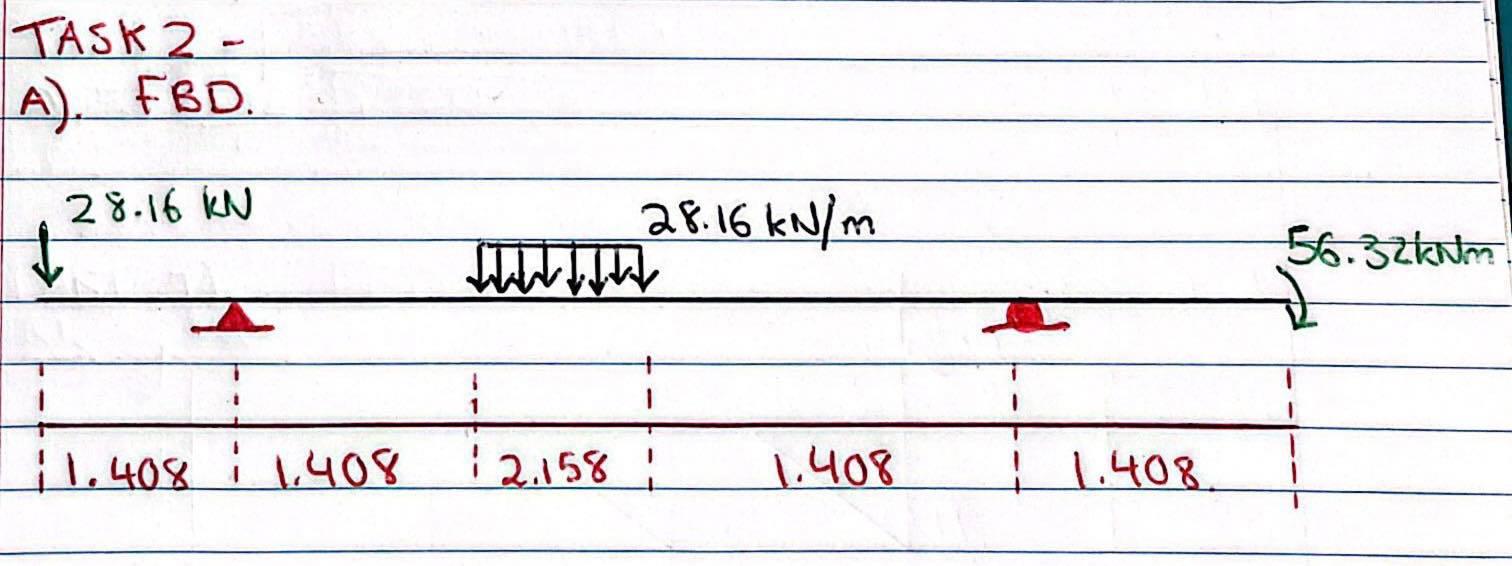 TASK 2 -
A). FBD.
28.16 kN
28.16 kN/m
56.32kNm
1.408 1.408 2.158 1.408 1.408.